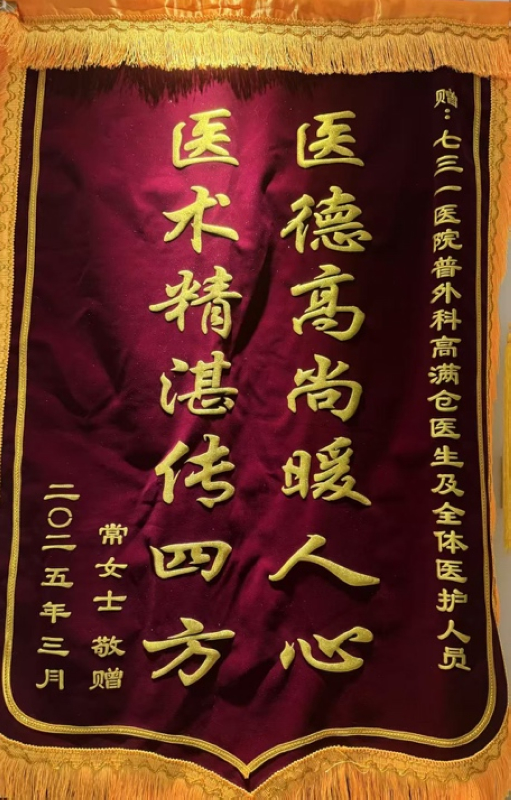 赠：七三一医院普外科高满仓医生及全体医护人员
医德高尚暖人心
医术精湛传四方
常女士 敬赠
二〇二五年三月